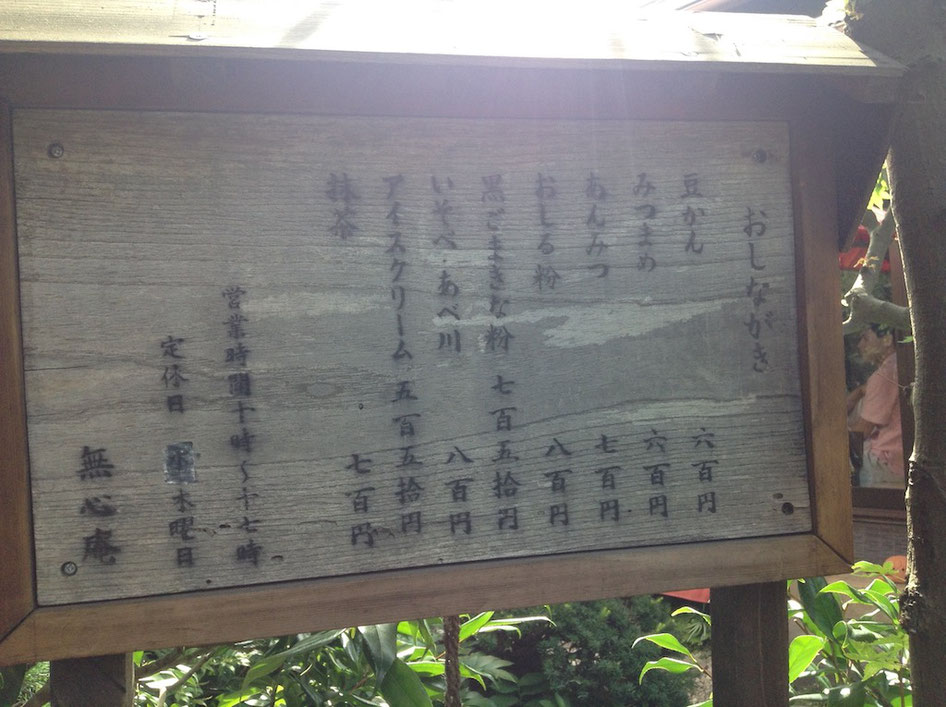 おしながき
豆かん 六百円
みつまめ 六百円
あんみつ 七百円
おしる粉 八百円
黒ごまきな粉 七百五拾円
いそべ・あべ川 八百円
アイスクリーム 五百五拾円
抹茶 七百円
営業時間十時〜十七時
定休日 木曜日
無心庵